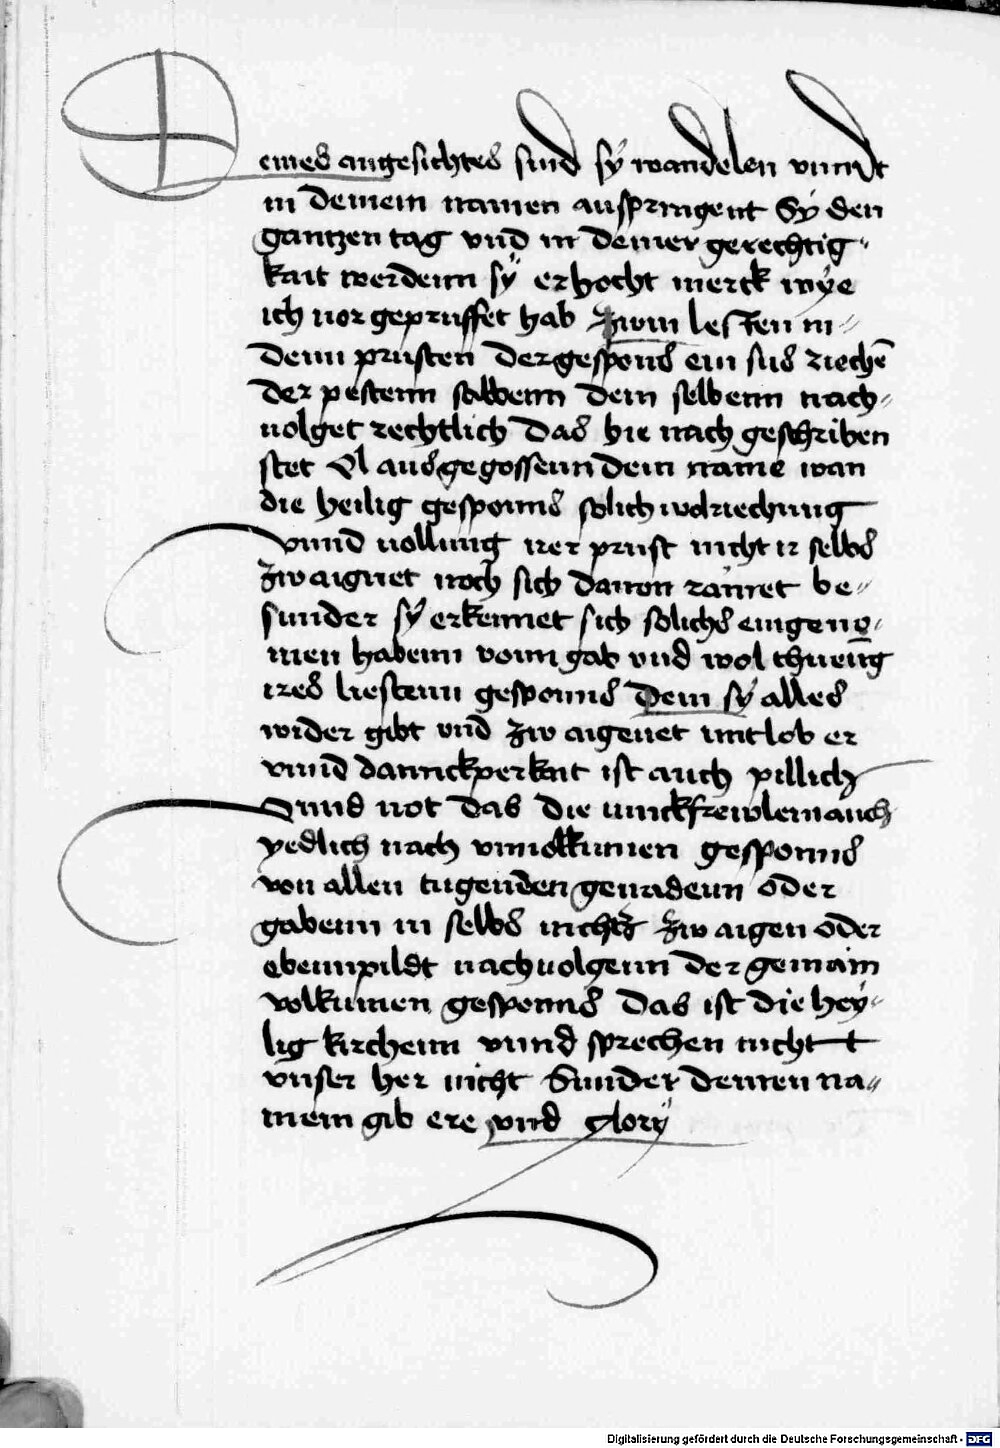 Deines angesichtes sind sÿ wandelen vnndt
in deinem namen auspringent Sÿ den
gantzen tag vnd in deiner gerechtig-
kait werdenn sÿ erhocht merck wÿe
ich uor gepruffet hab Zwm lesten in-
denn prusten der gespons ein sus riechē
der pestenn salbenn dem selbenn nach-
uolget rechtlich das hie nach geschriben
stet Ol ausgegossenn dein name wan
die heilig gesponns solich wolriechung
vnnd uollung irer prust nicht ir selbs
zwaignet noch sich dauon rämet be-
sunder sÿ erkennet sich solichs eingeno-
men habenn vonn gab vnd wol thueng
ires liebstenn gesponns Dem sÿ alles
wider gibt vnd zw aigenet mit lob er
vnnd dannckperkait ist auch pillich
Vnnd not das die iunckfrewlein auch
yedlich nach vnuolkumen gesponns
von allen tugenden genadenn oder
gabenn in selbs nichtz zw aigen oder
ebennpildt nachuolgenn der gemain
volkumen gesponns das ist die heÿ-
lig kirchenn vnnd sprechen nicht t
vnser her nicht Sunder deinen na-
mem gib ere vnd glorÿ
Digitalisierung gefördert durch die Deutsche Forschungsgemeinschaft - DFG